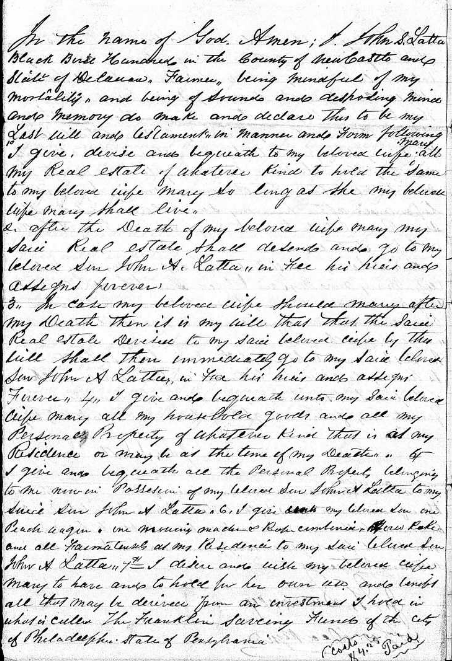 In the name of God, Amen; I John S. Latta
Black Bird Hundred in the County of New Castle and
State of Delaware Farmer, being mindful of my
mortality, and being of Sound and disposing mind
and memory do make and declare this to be my
Last will and testament in manner and Form following
I give, devise and bequeath to my beloved wife Mary all
my Real estate of whatever Kind to hold the Same
to my beloved wife mary So long as She my beloved
wife mary Shall live.
2. after the Death of my beloved wife mary my
Said Real estate Shall desend and go to my
beloved Son John A. Latta, in Fee his heirs and
assigns forever.
3. In case my beloved wife Should mary after
my Death then it is my will that that the Said
Real estate Devised to my Said beloved wife by this
will Shall then immediately go to my Said beloved
Son John A Latta, in Fee his heirs and assigns
Forever. 4. I give and bequeath unto my Said beloved
wife mary all my household goods and all my
Personal Property of whatever Kind that is at my
Residence or may be at the time of my Death. 5
I give and bequeath all the Personal Property belonging
to me now in Possession of my beloved Son John A Latta to my
Said Son John A Latta. 6. I give my beloved Son one
Peach wagon, one mowing machine & Reap combined, Horse Rake
and all Farm at my Residence to my Said beloved Son
John A Latta. 7th I desire and wish my beloved wife
mary to have and to hold for her own use and benefit
all that may be derived from an investment I hold in
what is called The Franklin Saveing Fund of the City
of Philadelphia State of Pensylvania
Costs
Paid